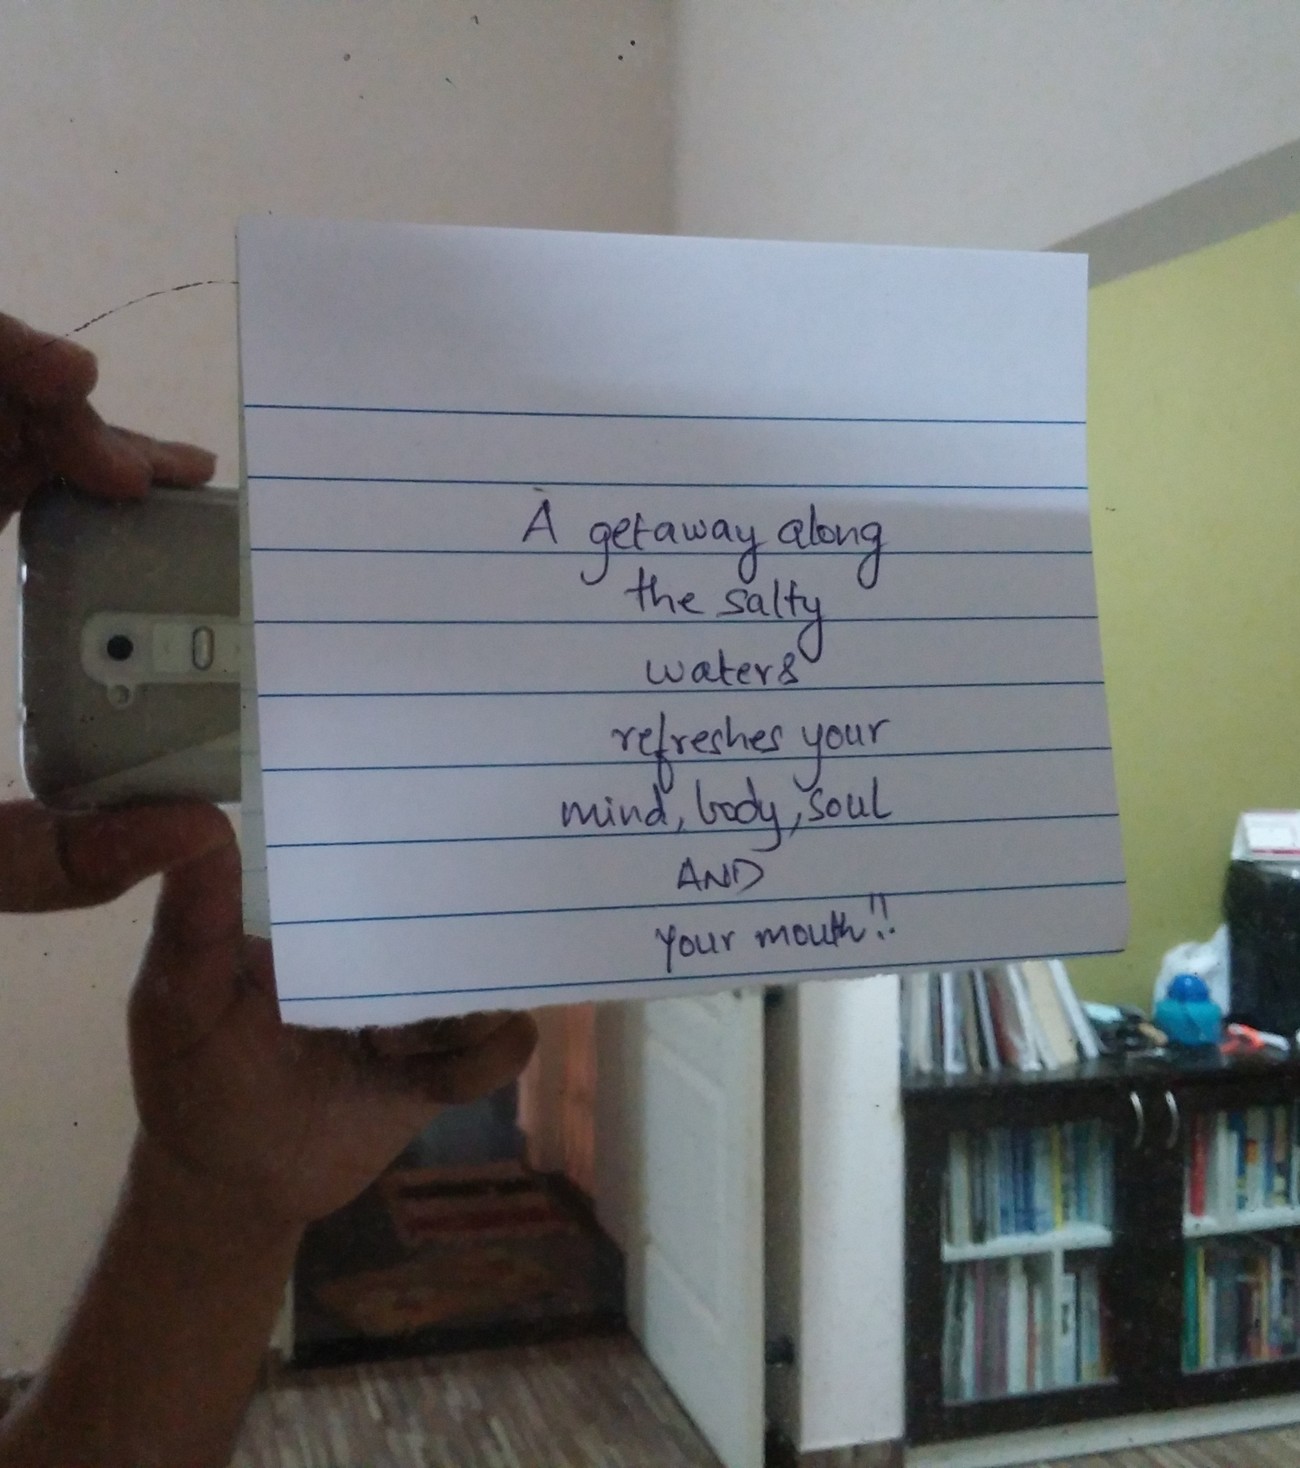 A getaway along
the salty
waters
refreshes your
mind, body, soul
AND
your mouth!!